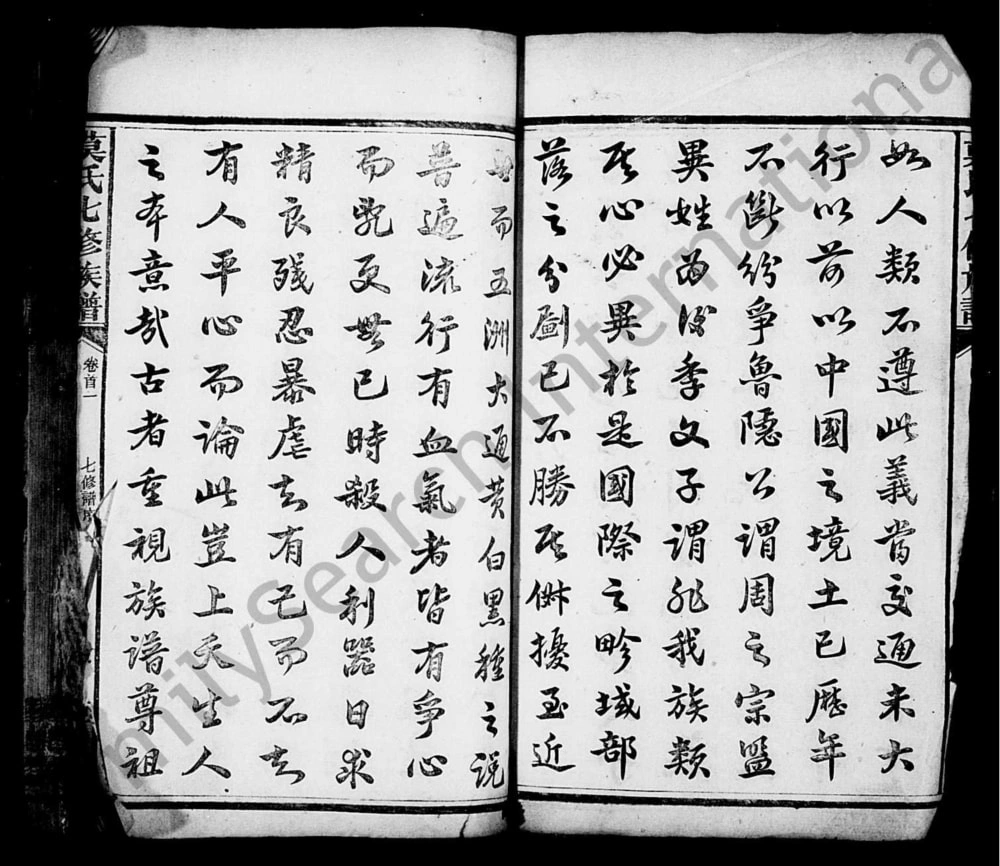 如人類不遵此義當交通未大
行以前以中國之境土已歷年
不斷紛爭魯隱公謂周之宗盟
異姓為後季文子謂非我族類
其心必異於是國際之畛域部
落之分劃已不勝其紛擾至近
世而五洲大通黃白黑種之說
普遍流行有血氣者皆有爭心
而競更無已時殺人利器日求
精良殘忍暴虐去有己而不去
有人平心而論此豈上天生人
之本意哉古者重視族譜尊祖
莫氏七修族譜
卷首一
七修譜
FamilySearch International